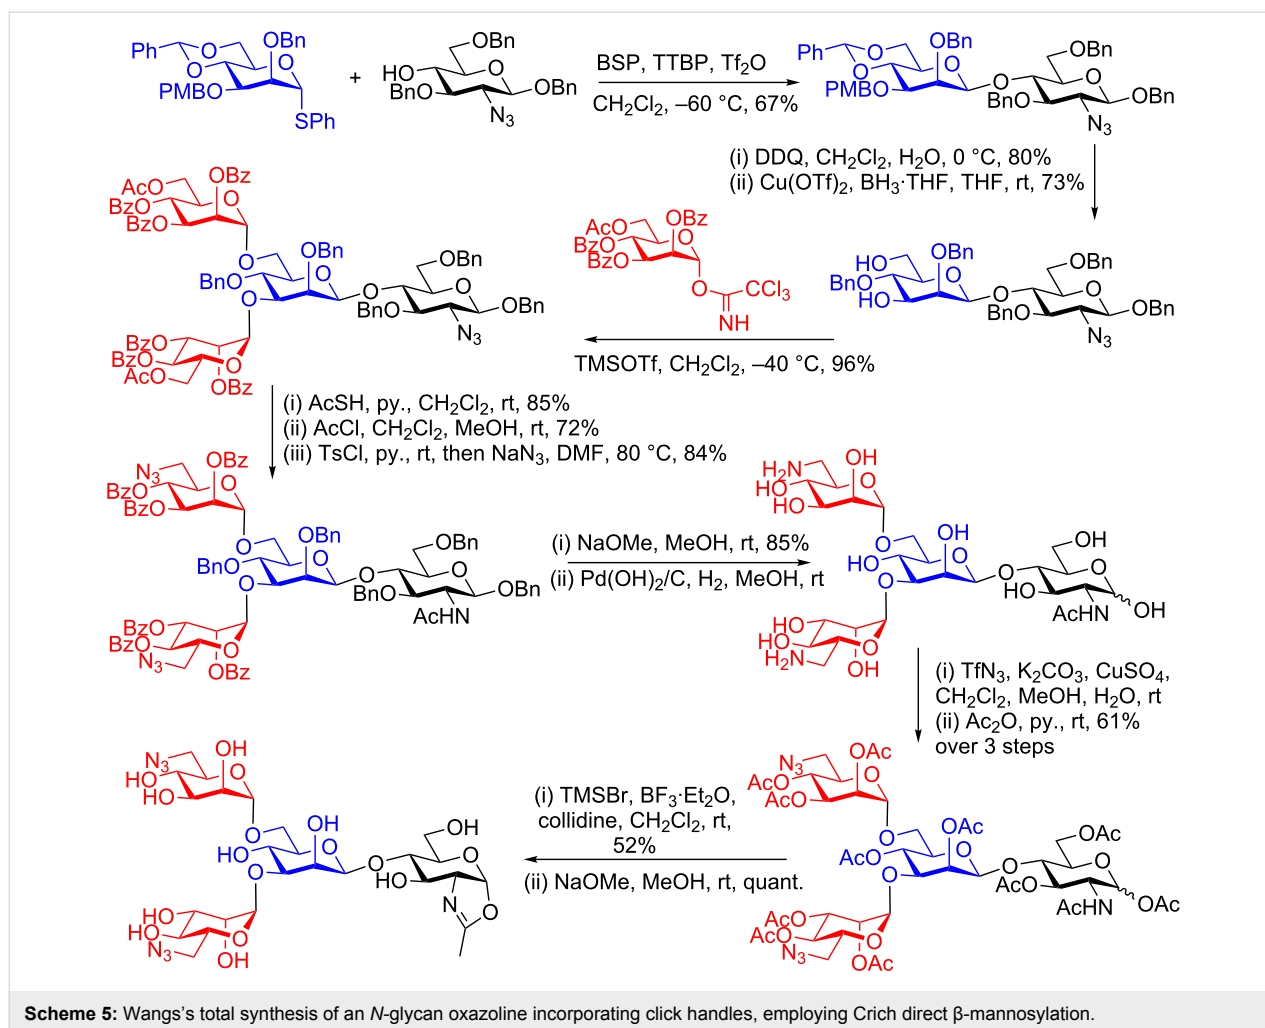 Ph
O
O
PMBO
OBn
O
SPh
+
OBn
HO
O
BnO
OBn
N3
BSP, TTBP, Tf2O
CH2Cl2, –60 °C, 67%
Ph
O
O
PMBO
OBn
O
O
OBn
O
BnO
OBn
N3
(i) DDQ, CH2Cl2, H2O, 0 °C, 80%
(ii) Cu(OTf)2, BH3·THF, THF, rt, 73%
HO
OBn
O
BnO
HO
O
OBn
O
BnO
OBn
N3
AcO
OBz
O
BzO
BzO
O
CCl3
NH
TMSOTf, CH2Cl2, –40 °C, 96%
AcO
OBz
O
BzO
BzO
O
OBn
O
BnO
O
O
OBn
O
BnO
OBn
N3
BzO
BzO
O
AcO
OBz
(i) AcSH, py., CH2Cl2, rt, 85%
(ii) AcCl, CH2Cl2, MeOH, rt, 72%
(iii) TsCl, py., rt, then NaN3, DMF, 80 °C, 84%
N3
OBz
O
BzO
BzO
O
OBn
O
BnO
O
O
OBn
O
BnO
OBn
AcHN
BzO
BzO
O
N3
OBz
(i) NaOMe, MeOH, rt, 85%
(ii) Pd(OH)2/C, H2, MeOH, rt
H2N
OH
O
HO
HO
O
OH
O
HO
O
O
OH
O
HO
AcHN
OH
HO
HO
O
H2N
OH
(i) TfN3, K2CO3, CuSO4,
CH2Cl2, MeOH, H2O, rt
(ii) Ac2O, py., rt, 61%
over 3 steps
N3
OAc
O
AcO
AcO
O
OAc
O
AcO
O
O
OAc
O
AcO
AcHN
OAc
AcO
AcO
O
N3
OAc
(i) TMSBr, BF3·Et2O,
collidine, CH2Cl2, rt,
52%
(ii) NaOMe, MeOH, rt, quant.
N3
OH
O
HO
HO
O
OH
O
HO
O
O
OH
O
HO
N
O
HO
HO
O
N3
OH
Scheme 5: Wangs's total synthesis of an N-glycan oxazoline incorporating click handles, employing Crich direct β-mannosylation.